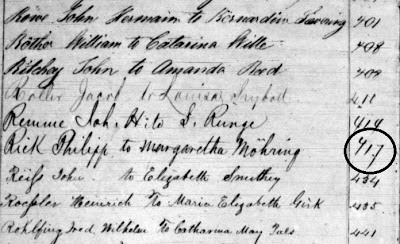 Rowe John Hermann to Bernardin 401
Bother William to Catarina Witte 408
Ritchey John to Amanda Reed 409
Roller Jacob to Louisa 411
Remme Joh. H. to D. Runge 414
Rick Philipp to Margaretha Möhring 417
Reifs John to Elizabeth Smuthey 434
Roessler Heinrich to Maria Elizabeth Girk 435
Rohlfing Fred. Wilhelm to Catharina May 441